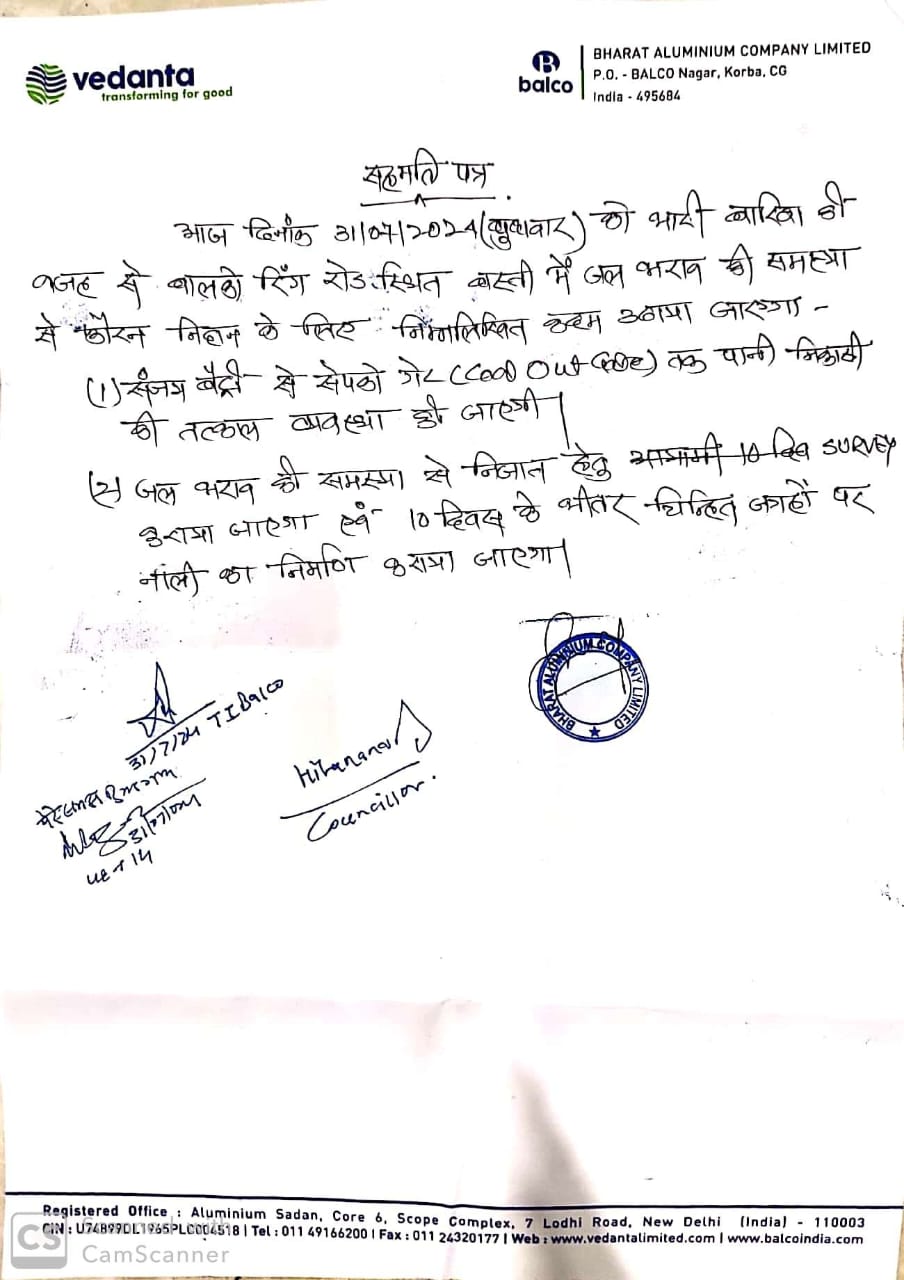 vedanta
transforming for good
balco
BHARAT ALUMINIUM COMPANY LIMITED
P.O. - BALCO Nagar, Korba, CG
India - 495684
सहमति पत्र
आज दिनांक 31/07/2024 (बुधवार) को भारी बारिश की
वजह से बालको रिंग रोड स्थित बस्ती में जल भराव की समस्या
से फौरन निदान के लिए निम्नलिखित कदम उठाया जाएगा -
(1) संजय बैट्री से सेपको गेट (Coal Out Gate) तक पानी निकासी
की तत्काल व्यवस्था की जाएगी।
(2) जल भराव की समस्या से निजात हेतु आगामी 10 दिन SURVEY
कराया जाएगा एवं 10 दिवस के भीतर चिन्हित जगहों पर
नाली का निर्माण कराया जाएगा।
BHARAT ALUMINIUM COMPANY LIMITED
31/7/24 TI Balco
Hitanand
Councillor.
Registered Office : Aluminium Sadan, Core 6, Scope Complex, 7 Lodhi Road, New Delhi (India) - 110003
CIN : U74899DL1965PLC004518 | Tel : 011 49166200 | Fax : 011 24320177 | Web : www.vedantalimited.com | www.balcoindia.com
CS Scanned with
CamScanner